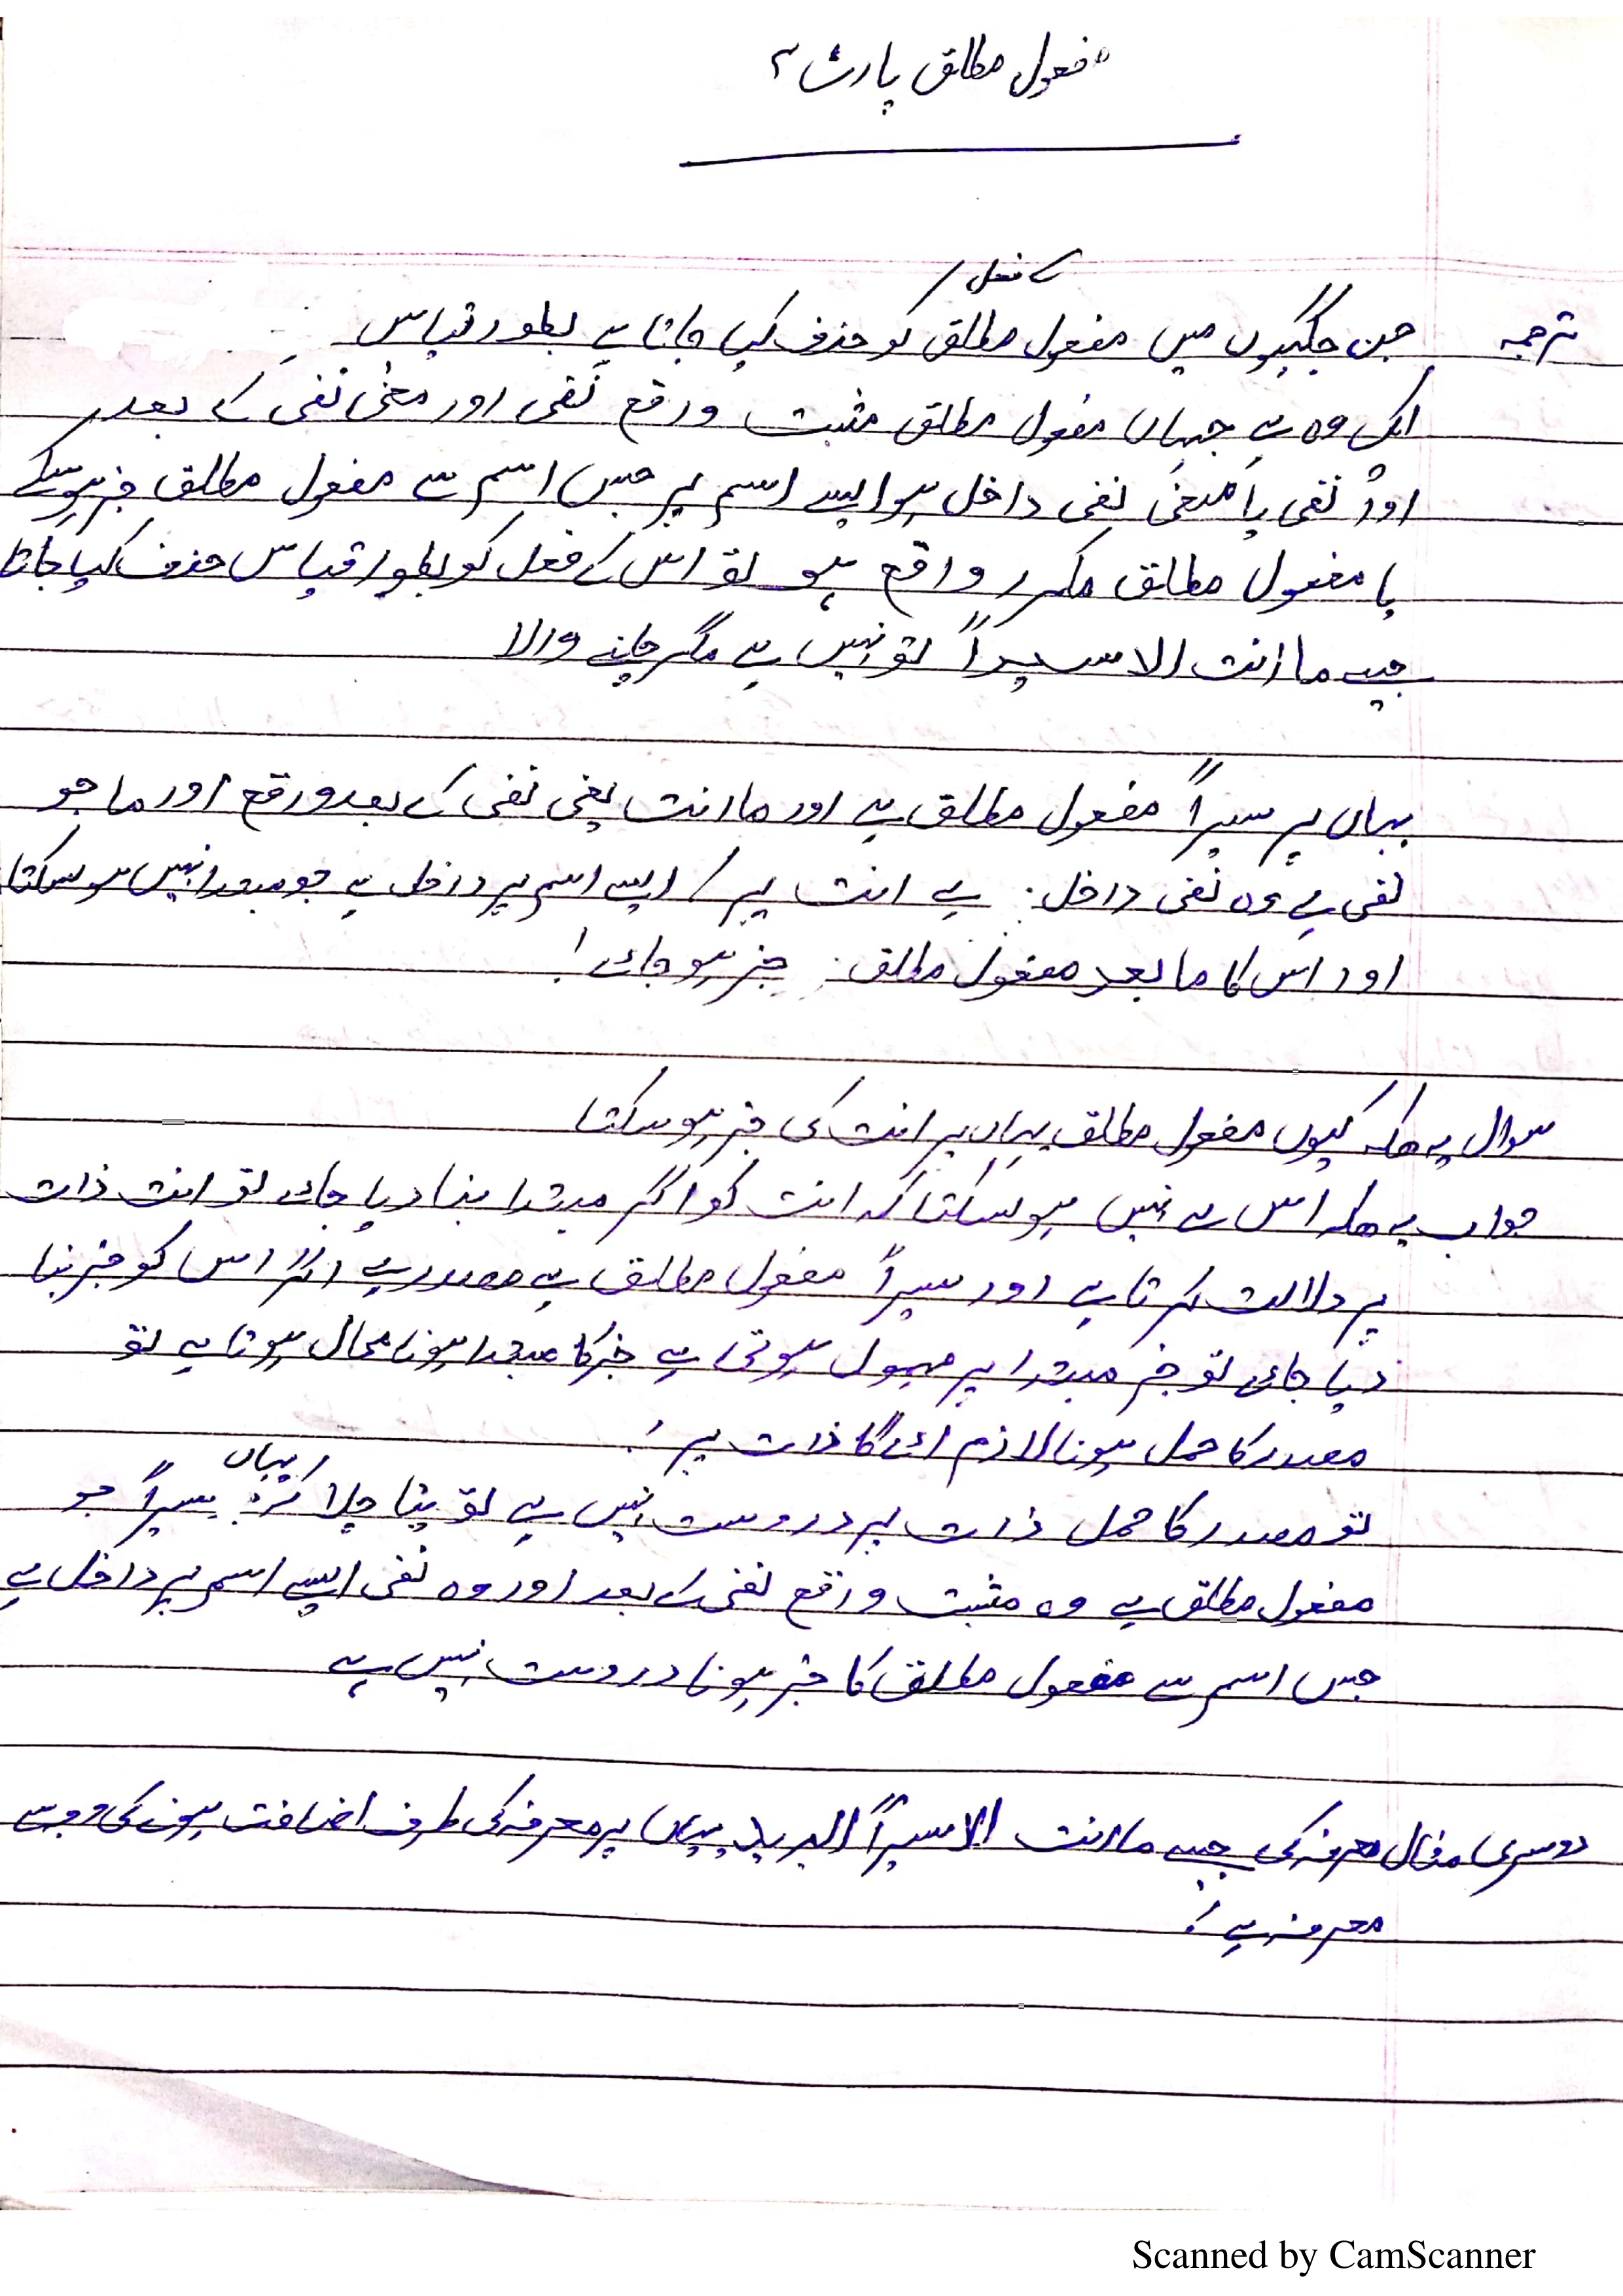 مفعول مطلق پارٹ ۲
کے فعل /
ترجمہ جن جگہوں میں مفعول مطلق کو حذف کیا جاتا ہے بطور قیاس
ایک وہ ہے جہاں مفعول مطلق مثبت ورقع نفی اور معنیٰ نفی کے بعد
اور نفی یا معنیٰ نفی داخل ہو ایسے اسم پر جس اسم سے مفعول مطلق خبر ہو سکے
یا مفعول مطلق مکرر واقع ہو تو اس کے فعل کو بطور قیاس حذف کیا جاتا
جیسے ما انت الا سیراً تو نہیں ہے مگر چلنے والا
یہاں پر سیراً مفعول مطلق ہے اور ما انت یعنی نفی کے بعد ورقع اور ما جو
نفی ہے وہ نفی داخل ہے انت پر / ایسے اسم پر داخل ہے جو مبتدا نہیں ہو سکتا
اور اس کا ما بعد مفعول مطلق خبر ہو جائے !
سوال یہ ھیکہ کیوں مفعول مطلق یہاں پر انت کی خبر ہو سکتا
جواب یہ ھیکہ اس سے نہیں ہو سکتا کہ انت کو اگر مبتدا بنا دیا جائے تو انت ذات
پر دلالت کرتا ہے اور سیراً مفعول مطلق ہے مصدر ہے اگر اس کو خبر بنا
دیا جائے تو خبر مبتدا پر مہمول ہوتی ہے خبر کا مبتدا ہونا محال ہوتا ہے تو
مصدر کا حمل ہونا لازم ائے گا ذات پر ؛
تو مصدر کا حمل ذات پر دروست نہیں ہے تو پتا چلا کہ / یہاں سیراً جو
مفعول مطلق ہے وہ مثبت ورقع نفی کے بعد اور وہ نفی ایسے اسم پر داخل ہے
جس اسم سے مفعول مطلق کا خبر ہونا دروست نہیں ہے
دوسری مثال معرفہ کی جیسے ما انت الا سیراً البرید یہاں پر معرفہ کی طرف اضافت ہونے کی وجہ سے
معرفہ ہے ؛
Scanned by CamScanner